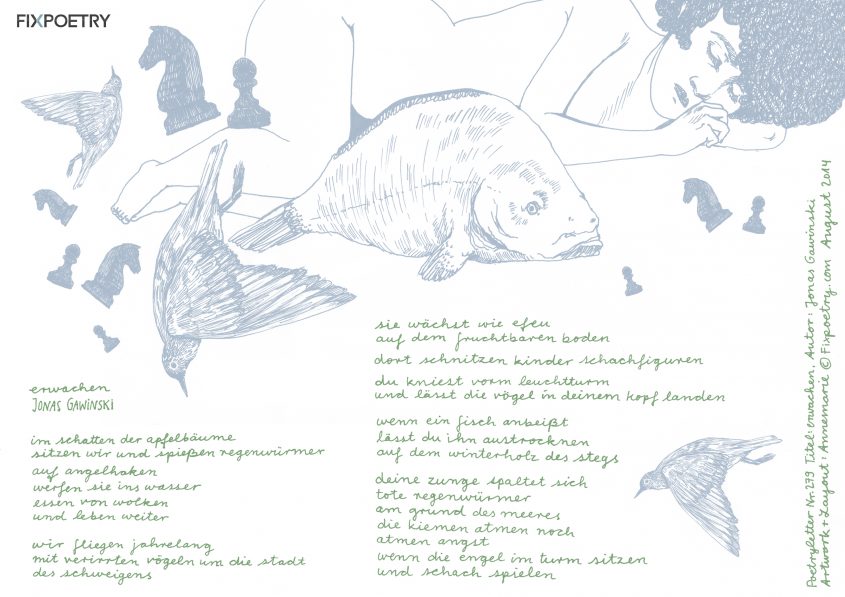 FIXPOETRY
erwachen
JONAS GAWINSKI
im schatten der apfelbäume
sitzen wir und spießen regenwürmer
auf angelhaken
werfen sie ins wasser
essen von wolken
und leben weiter
wir fliegen jahrelang
mit verirrten vögeln um die stadt
des schweigens
sie wächst wie efeu
auf dem fruchtbaren boden
dort schnitzen kinder schachfiguren
du kniest vorm leuchtturm
und lässt die vögel in deinem kopf landen
wenn ein fisch anbeißt
lässt du ihn austrocknen
auf dem winterholz des stegs
deine zunge spaltet sich
tote regenwürmer
am grund des meeres
die kiemen atmen noch
atmen angst
wenn die engel im turm sitzen
und schach spielen
Poetryletter Nr. 279 Titel: erwachen, Autor: Jonas Gawinski
Artwork + Layout: Annemarie © Fixpoetry.com August 2014